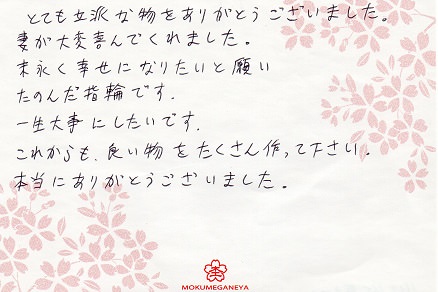 とても立派な物をありがとうございました。
妻が大変喜んでくれました。
末永く幸せになりたいと願い
たのんだ指輪です.
一生大事にしたいです.
これからも、良い物をたくさん作って下さい.
本当にありがとうございました。
MOKUMEGANEYA